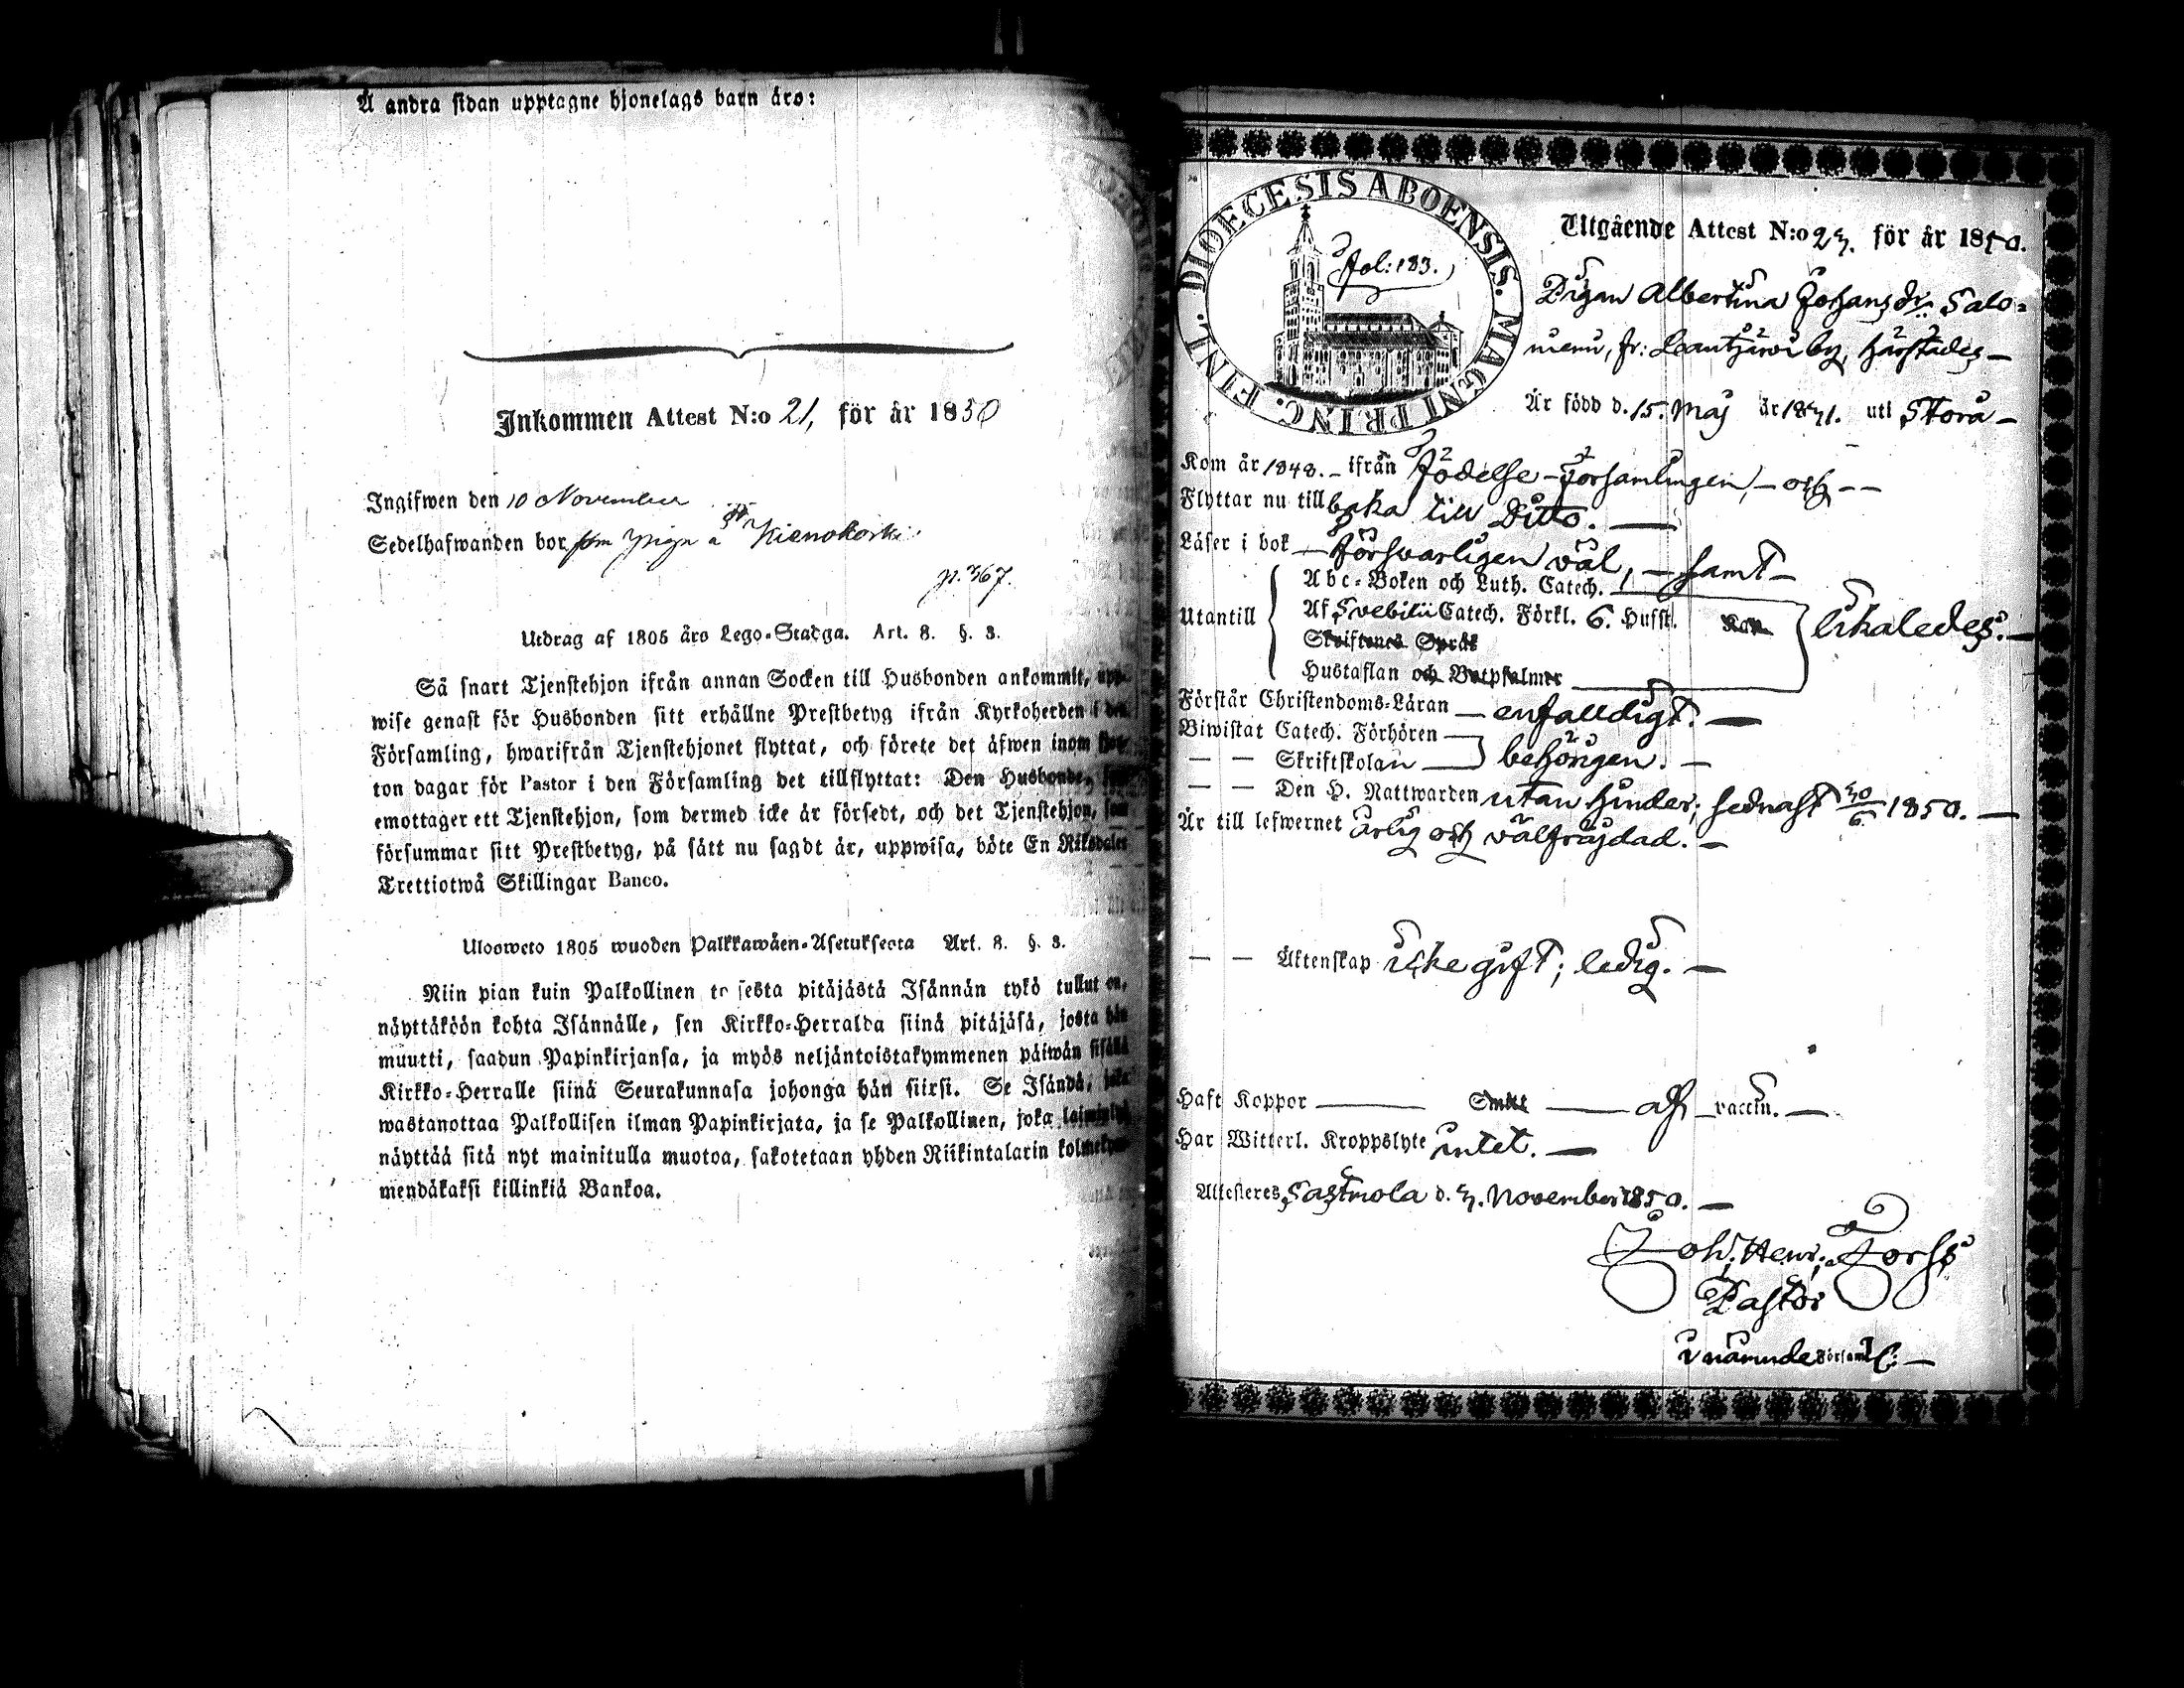 Å andra sidan upptagne hjonelags barn äro:
Inkommen Attest N:o 21, för år 1850
Ingifwen den 10 November
Sedelhafwanden bor som piga å
p. 367.
Utdrag af 1805 års Lego-Stadga. Art. 8. §. 3.
Så snart Tjenstehjon ifrån annan Socken till Husbonden ankommit, upp-
wise genast för Husbonden sitt erhållne Prestbetyg ifrån Kyrkoherden i den
Församling, hwarifrån Tjenstehjonet flyttat, och förete det äfwen inom fjor-
ton dagar för Pastor i den Församling det tillflyttat: Den Husbonde, som
emottager ett Tjenstehjon, som dermed icke är försedt, och det Tjenstehjon, som
försummar sitt Prestbetyg, på sätt nu sagdt är, uppwisa, böte En Riksdaler
Trettiotwå Skillingar Banco.
Uloosweto 1805 wuoden Palkkawäen-Asetuksesta Art. 8. §. 3.
Niin pian kuin Palkollinen toisesta pitäjästä Isännän tykö tullut on,
näyttäköön kohta Isännälle, sen Kirkko-Herralda siinä pitäjäsä, josta hän
muutti, saadun Papinkirjansa, ja myös neljäntoistakymmenen päiwän sisällä
Kirkko-Herralle siinä Seurakunnasa johonga hän siirsi. Se Isändä, joka
wastanottaa Palkollisen ilman Papinkirjata, ja se Palkollinen, joka laiminlyö
näyttää sitä nyt mainitulla muotoa, sakotetaan yhden Riikintalarin kolmekym-
mendäkaksi killinkiä Bankoa.
DIOECESIS ABOENSIS. MAGNI PRINC. FINL.
Fol: 183.
Utgående Attest N:o 23. för år 1850.
Pigan Albertina Johansdr. Salo-
niemi, fr: by, härstädes
Är född d. 15. Maj år 1831. uti Storå
Kom år 1848. ifrån Födelse-Församlingen, och
Flyttar nu till baka till Ditto.
Läser i bok försvarligen väl, samt
Abc-Boken och Luth. Catech.
Utantill Af Svebilii Catech. Förkl. 6. Hufst. likaledes.
Skriftenes Språk
Hustaflan och Botpsalmer
Förstår Christendoms-Läran enfalldigt.
Biwistat Catech. Förhören
— — Skriftskolan behörigen.
— — Den H. Nattwarden utan hinder; sednast 30/6 1850.
Är till lefwernet ärlig och välfräjdad.
— — Äktenskap icke gift; ledig.
Haft Koppor vaccin.
Har Witterl. Kroppslyte intet.
Attesteres, Sastmola d. 3. November 1850.
Joh: Henr: Forss
Pastor
i nämnde Församl: